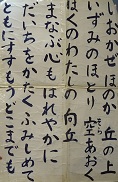 しおかぜほのか 丘の上
いずみのほとり 空あおく
はくのわたしの 向丘
まなぶ心もはれやかに
だいちをかたく ふみしめて
ともにすすもうどこまでも